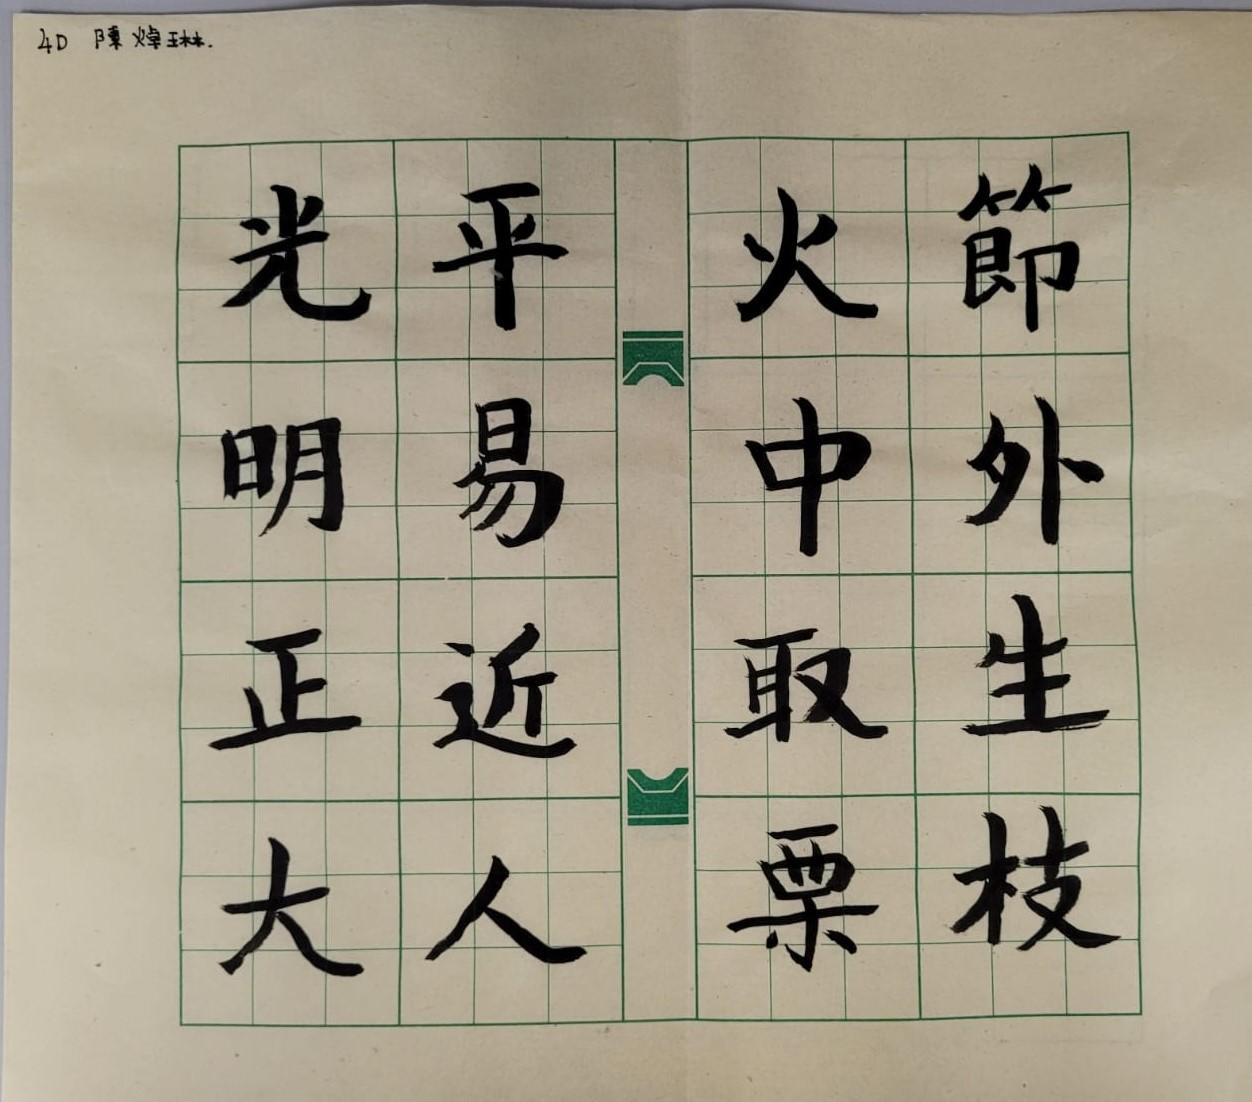 4D 陳焯琳.
節外生枝
火中取栗
平易近人
光明正大